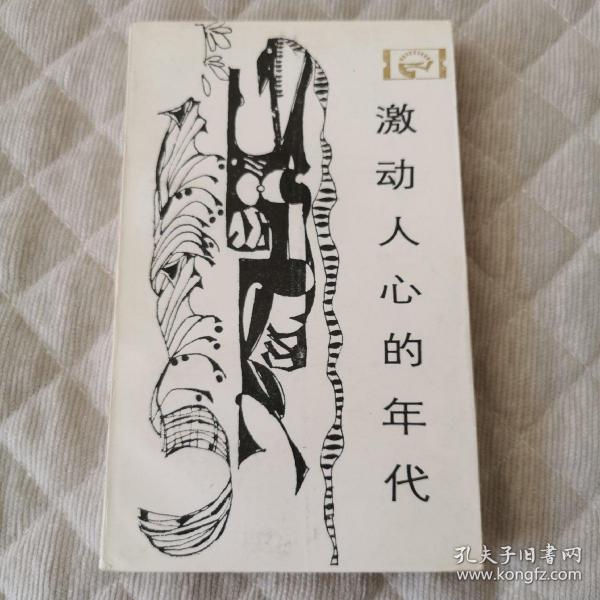 激动人心的年代
孔夫子旧书网
www.kongfz.com